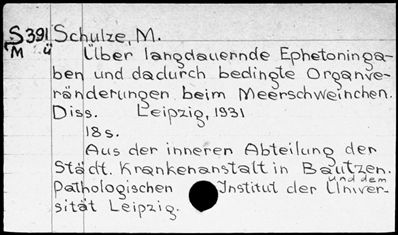 S391 Schulze, M.
M ü Über langdauernde Ephetoninga-
ben und dadurch bedingte Organve-
ränderungen beim Meerschweinchen.
Diss. Leipzig, 1931
18 s.
Aus der inneren Abteilung der
Städt. Krankenanstalt in Bautzen.
und dem
Pathologischen Institut der Univer-
sität Leipzig.